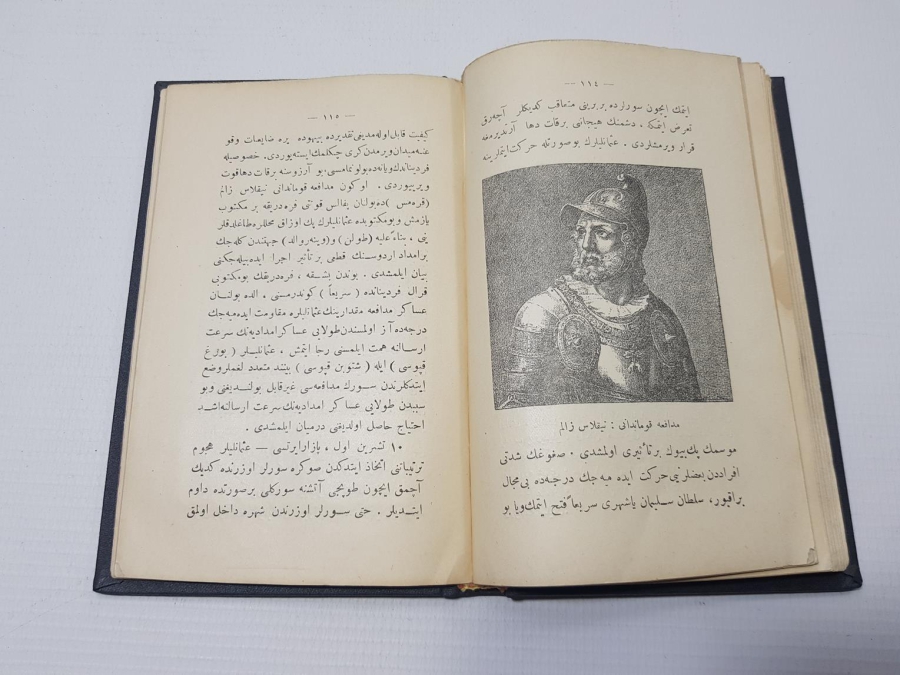 — ١١٤ —
ايتمك ايچون سورلرده بربرينى متعاقب كديكلر آچه‌رق
تعرض ايتمك ، دشمنك هيجانى برقات دها آرتديرمغه
قرار ويرمشلردى . عثمانليلرك بوصورتله حركت ايتملرينه
مدافعه قوماندانى : نيقلاس زالم
موسمك پك بيوك بر تأثيرى اولمشدى . صغوغك شدتى
افراددن بعضلرينى حركت ايده ميه جك درجه‌ده بى مجال
براقيور، سلطان سليمان ياشهرى سريعاً فتح ايتمك ويا بو
— ١١٥ —
كيفيت قابل اوله‌مديغى تقديرده بيهوده يره ضايعات وقو
عنه ميدان ويرمدن كرى چكلمك ايسته‌يوردى . خصوصيله
فرديناندك ويانه‌ده بولونمامسى بو آرزوسنه برقات دها قوت
ويرييوردى . او كون مدافعه قوماندانى نيقلاس زالم
(قره‌مس) ده بولنان پفالس قونتى فره‌دريقه بر مكتوب
يازمش و بو مكتوبده عثمانليلرك پك اوزاق محللره طاغلدقلر
ينى ، بناءً عليه (طولن) و (وينه‌روالد) جهتندن كله جك
بر امداد اردوسنك قطعى بر تأثير اجرا ايده‌بيله جكنى
بيان ايلمشدى . بوندن بشقه ، فره‌دريقك بو مكتوبى
قرال فرديناند‌ه (سريعاً) كوندرمسنى ، الده بولنان
عساكر مدافعه مقدارينك عثمانليلره مقاومت ايده ميه جك
درجه‌ده آز اولمسندن طولايى عساكر امداديه‌نك سرعت
ارسالنه همت ايلمسنى رجا ايتمش ، عثمانليلر (بورغ
قپوسى) ايله (شتوبن قپوسى) بيننده متعدد لغملر وضع
ايتدكلرندن سورك مدافعه‌سى غير قابل بولنديغنى و بو
سببدن طولايى عساكر امداديه‌نك سرعت ارسالنه اشد
احتياج حاصل اولديغنى درميان ايلمشدى .
١٠ تشرين اول ، بازار ايرتسى — عثمانليلر هجوم
ترتيباتنى اتخاذ ايتدكدن صوكره سورلر اوزرنده كديك
آچمق ايچون طوپجى آتشنه سوركلى برصورتده دوام
ايتديلر . حتى سورلر اوزرندن شهره داخل اولمق